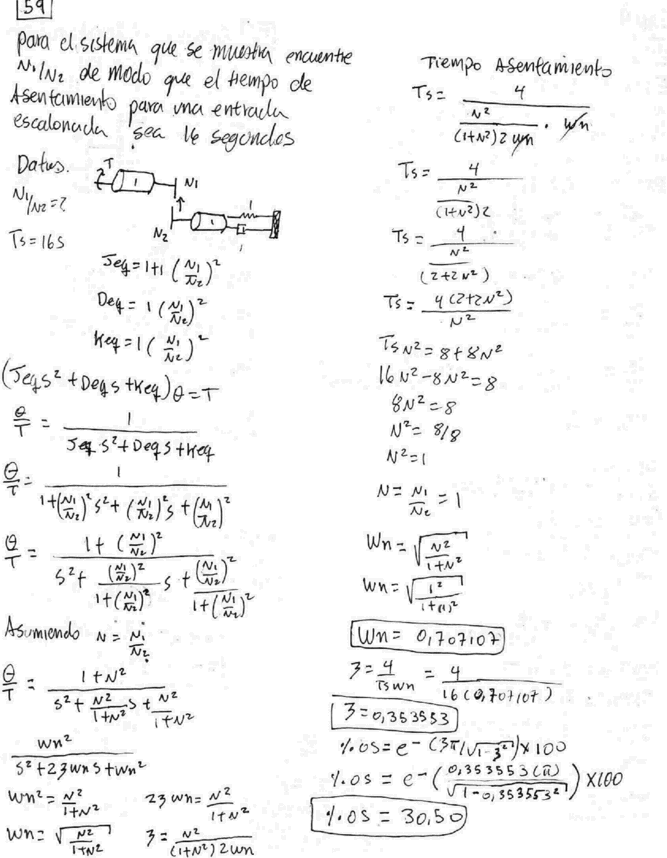 59
Para el sistema que se muestra encuentre
N1/N2 de modo que el tiempo de
Asentamiento para una entrada
escalonada sea 16 segundos
Datos.
N1/N2=?
Ts=16s
T 1 N1
N2 1 1
1
Jeq=1+1 (N1/N2)²
Deq= 1 (N1/N2)²
Keq=1 (N1/N2)²
(Jeqs²+Deqs+Keq)θ=T
θ/T = 1/(Jeq s²+Deqs+Keq)
θ/T = 1/(1+(N1/N2)²s²+(N1/N2)²s+(N1/N2)²)
θ/T = (1+(N1/N2)²)/(s²+((N1/N2)²/(1+(N1/N2)²))s+(N1/N2)²/(1+(N1/N2)²))
Asumiendo N = N1/N2
θ/T = (1+N²)/(s²+(N²/(1+N²))s+N²/(1+N²))
wn²/(s²+23wns+wn²)
wn²=N²/(1+N²) 23wn=N²/(1+N²)
wn=√(N²/(1+N²)) 3=N²/((1+N²)2wn)
Tiempo Asentamiento
Ts= 4/((N²/((1+N²)2wn))·wn)
Ts= 4/(N²/((1+N²)2))
Ts= 4/(N²/(2+2N²))
Ts= 4(2+2N²)/N²
TsN²=8+8N²
16N²-8N²=8
8N²=8
N²=8/8
N²=1
N= N1/N2 =1
Wn=√(N²/(1+N²))
Wn=√(1²/(1+(1)²))
Wn= 0,707107
3=4/(Tswn) = 4/(16(0,707107))
3=0,353553
%OS=e-(3π/√1-3²)x100
%OS = e-(0,353553(π)/√1-0,353553²)X100
%OS = 30,50